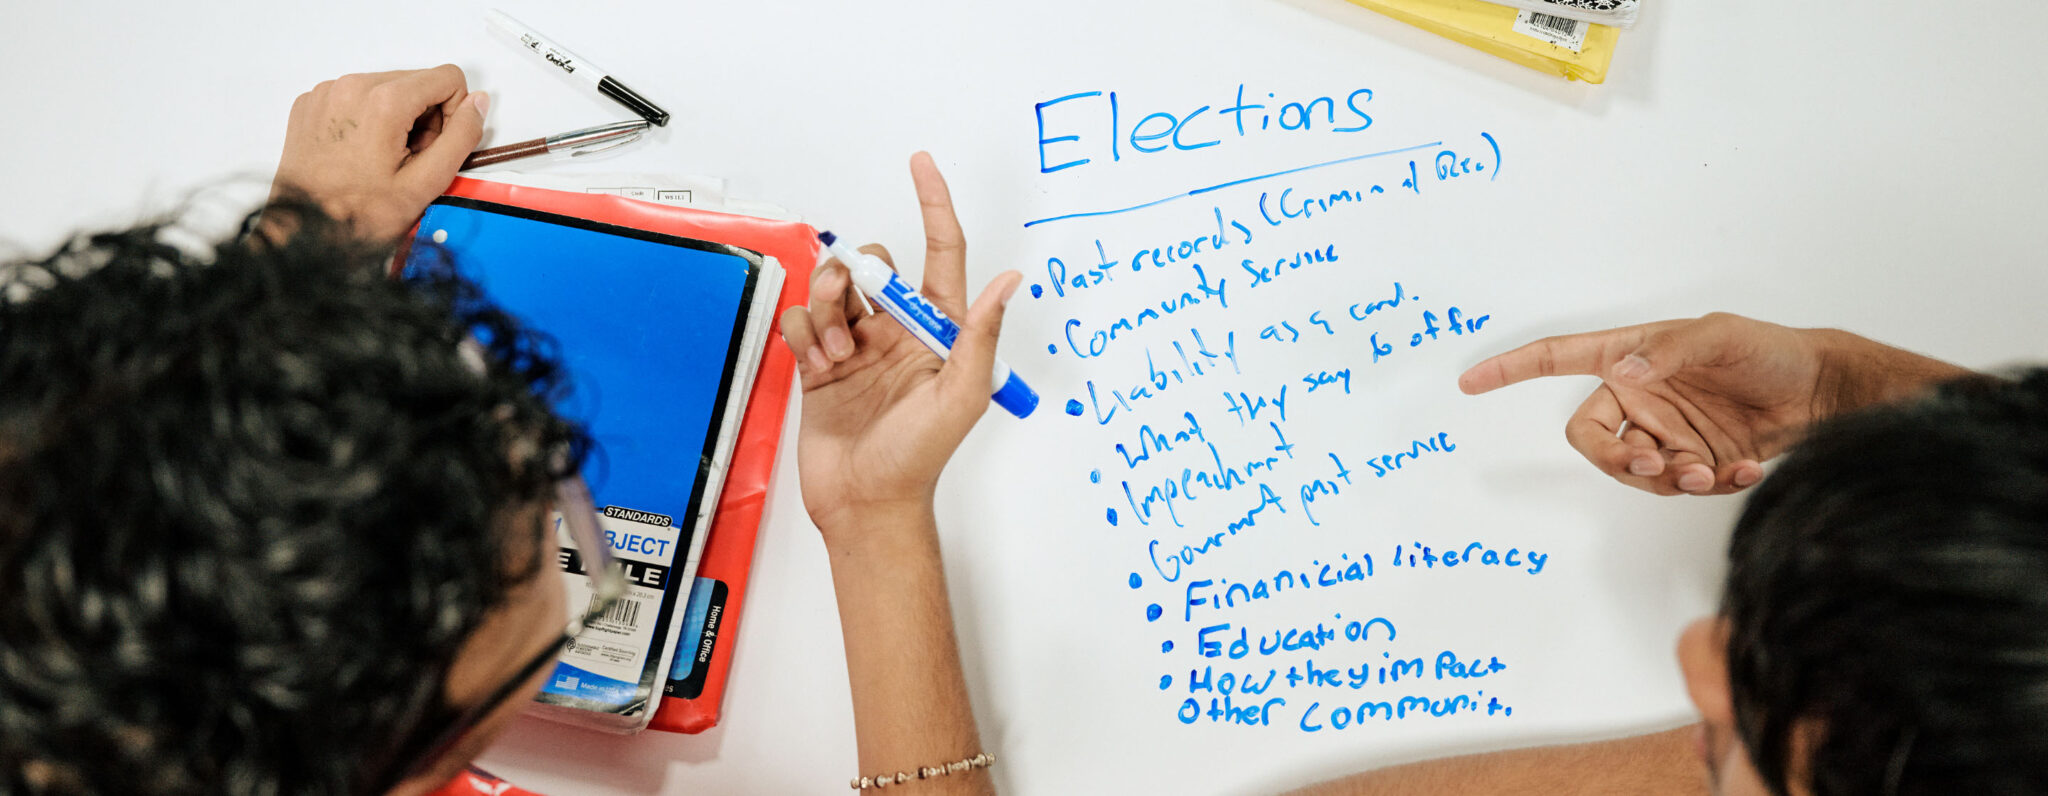 Elections
• Past records (Criminal Rec.)
• Community Service
• Liability as a cand.
• What they say to offer
• Impeachment
• Government past service
• Finanicial literacy
• Education
• How they impact
other communit.
EXPO
EXPO
Credit
WS 11.1
STANDARDS
1 SUBJECT
Certified Sourcing
Made in USA
Home & Office